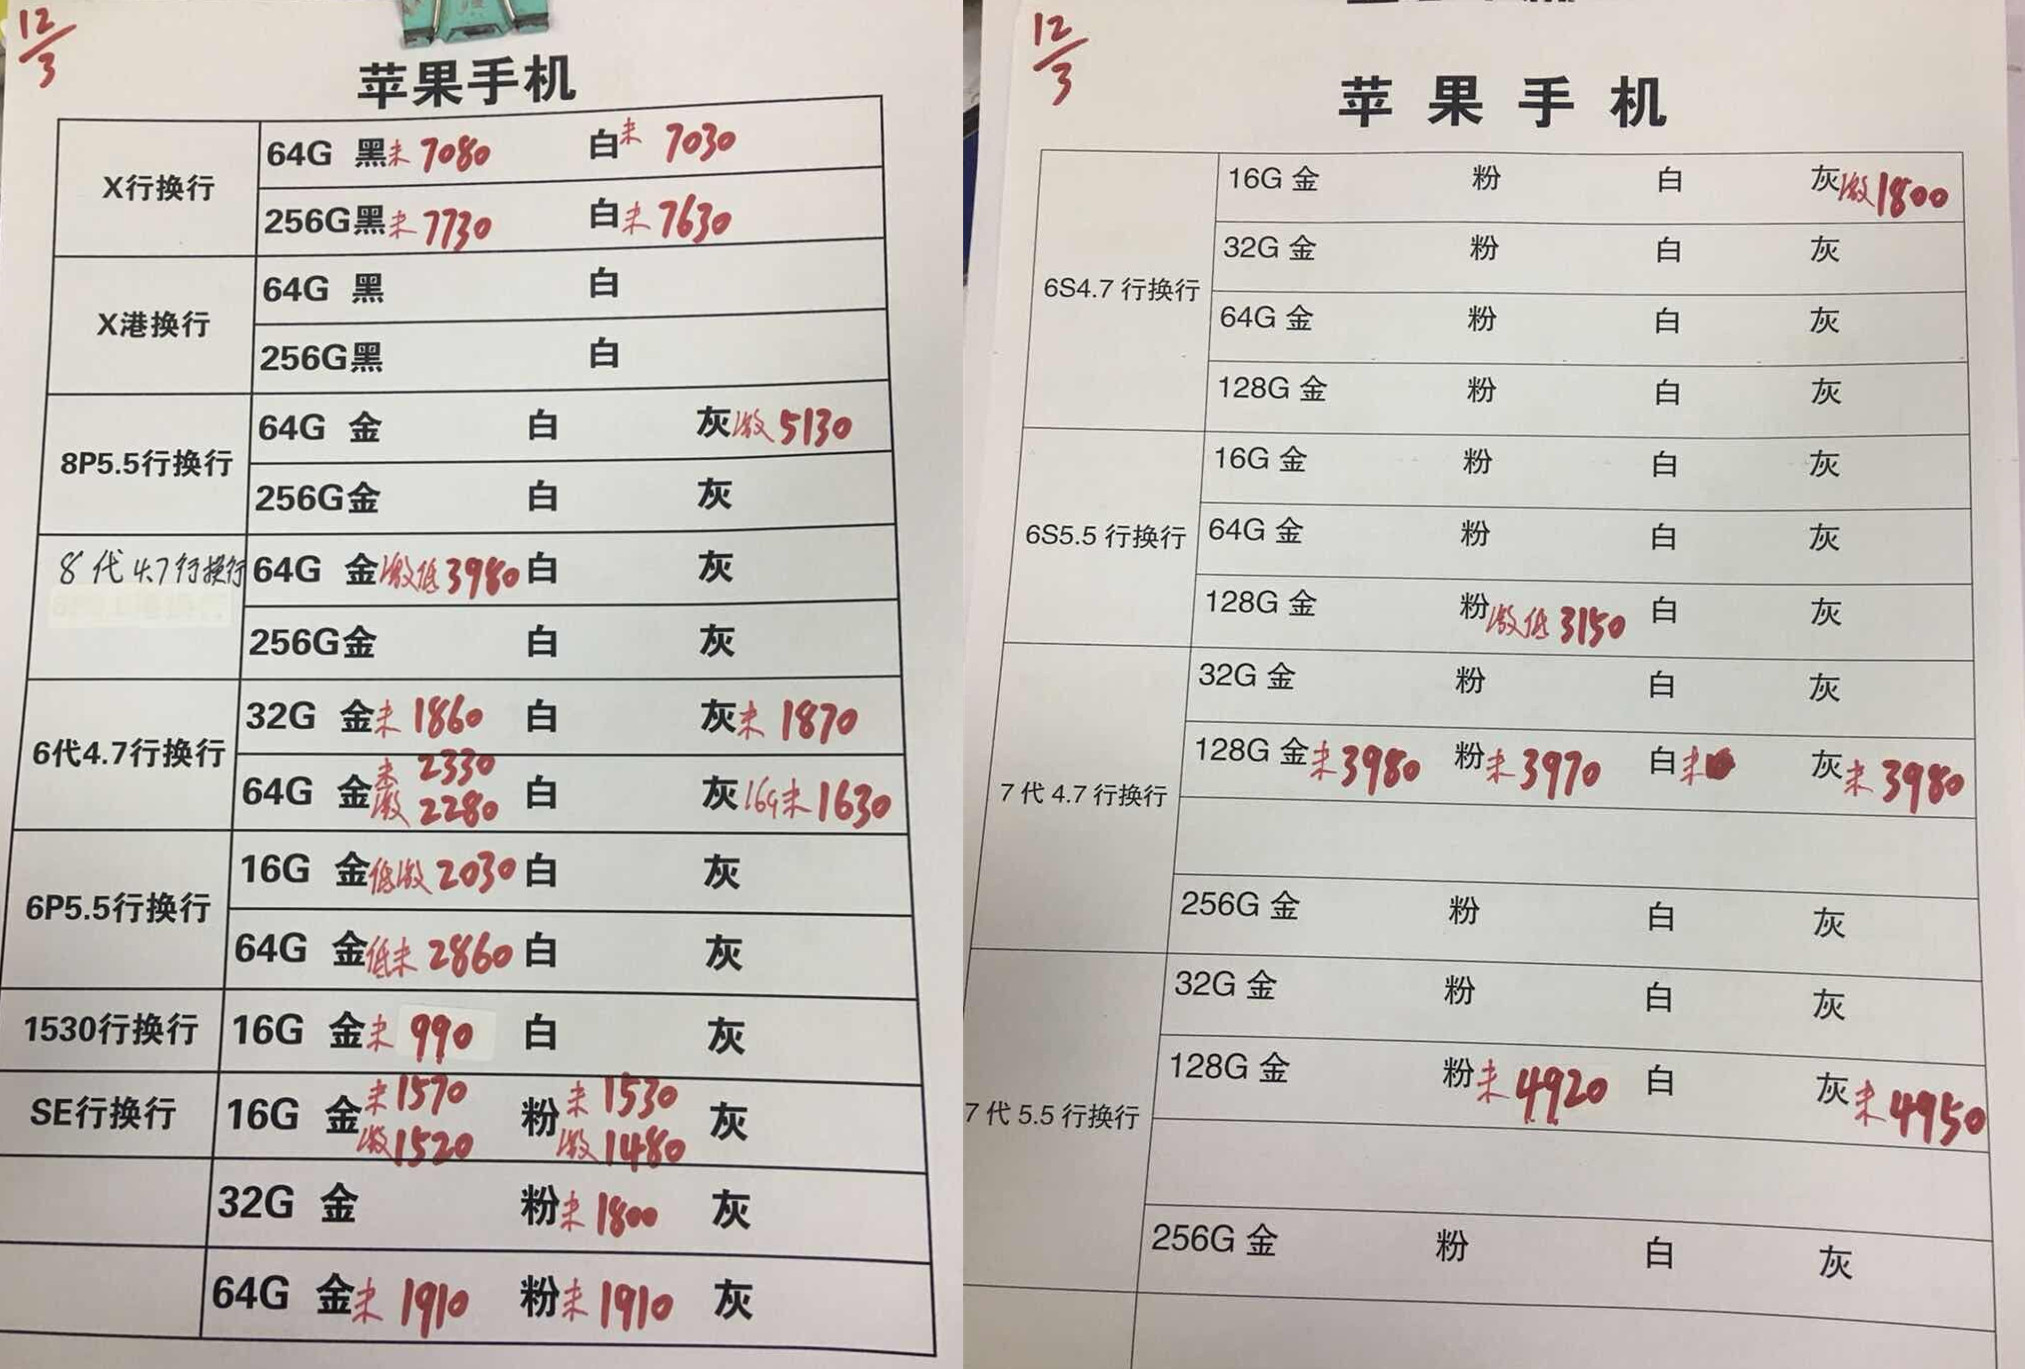 12/3
苹果手机
X行换行
64G 黑未7080 白未7030
256G黑未7730 白未7630
X港换行
64G 黑 白
256G黑 白
8P5.5行换行
64G 金 白 灰激5130
256G金 白 灰
8代4.7行换行
64G 金激低3980 白 灰
256G金 白 灰
6代4.7行换行
32G 金未1860 白 灰未1870
64G 金未2330 激2280 白 灰16G未1630
6P5.5行换行
16G 金低激2030 白 灰
64G 金低未2860 白 灰
1530行换行
16G 金未990 白 灰
SE行换行
16G 金未1570 激1520 粉未1530 激1480 灰
32G 金 粉未1800 灰
64G 金未1910 粉未1910 灰
12/3
苹果手机
6S4.7行换行
16G 金 粉 白 灰激1800
32G 金 粉 白 灰
64G 金 粉 白 灰
128G 金 粉 白 灰
6S5.5行换行
16G 金 粉 白 灰
64G 金 粉 白 灰
128G 金 粉激低3150 白 灰
7代4.7行换行
32G 金 粉 白 灰
128G 金未3980 粉未3970 白未 灰未3980
256G 金 粉 白 灰
7代5.5行换行
32G 金 粉 白 灰
128G 金 粉未4920 白 灰未4950
256G 金 粉 白 灰